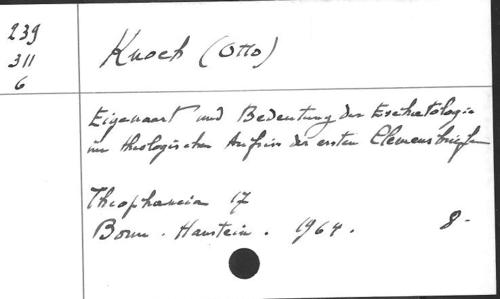 239
311
6
Knoch (Otto)
Eigenaart und Bedeutung der Eschatologie
im theologischen Aufriss des ersten Clemensbriefes
Theophaneia 17
Bonn. Hanstein. 1964. 8-